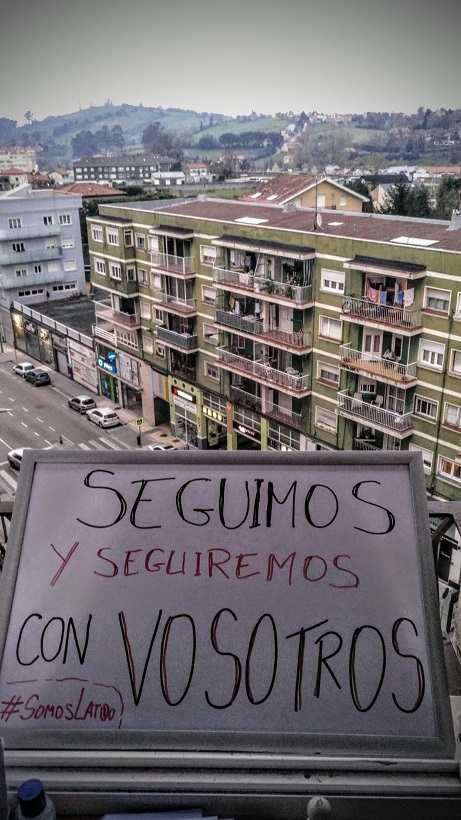 SEGUIMOS
Y SEGUIREMOS
CON VOSOTROS
#SOMOSLAT@0